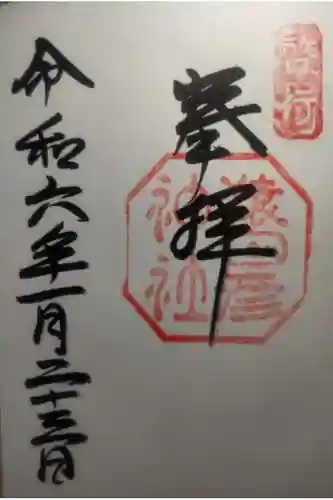 奉拝
猿田彦
神社
令和六年一月二十三日